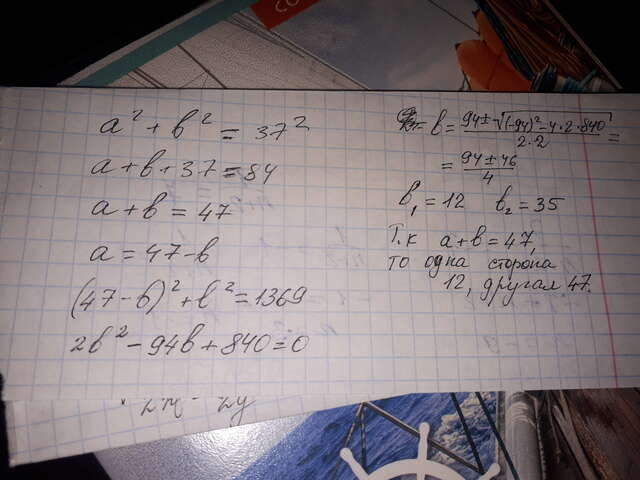 a² + b² = 37²
a + b + 37 = 84
a + b = 47
a = 47 - b
(47 - b)² + b² = 1369
2b² - 94b + 840 = 0
b = (94 ± √((-94)² - 4·2·840)) / (2·2) =
= (94 ± 46) / 4
b₁ = 12 b₂ = 35
Т.к a + b = 47,
то одна сторона
12, другая 47.